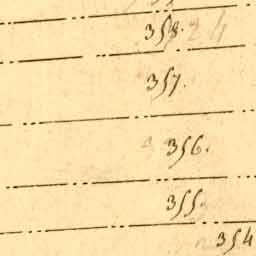 358.
357.
356.
355.
354